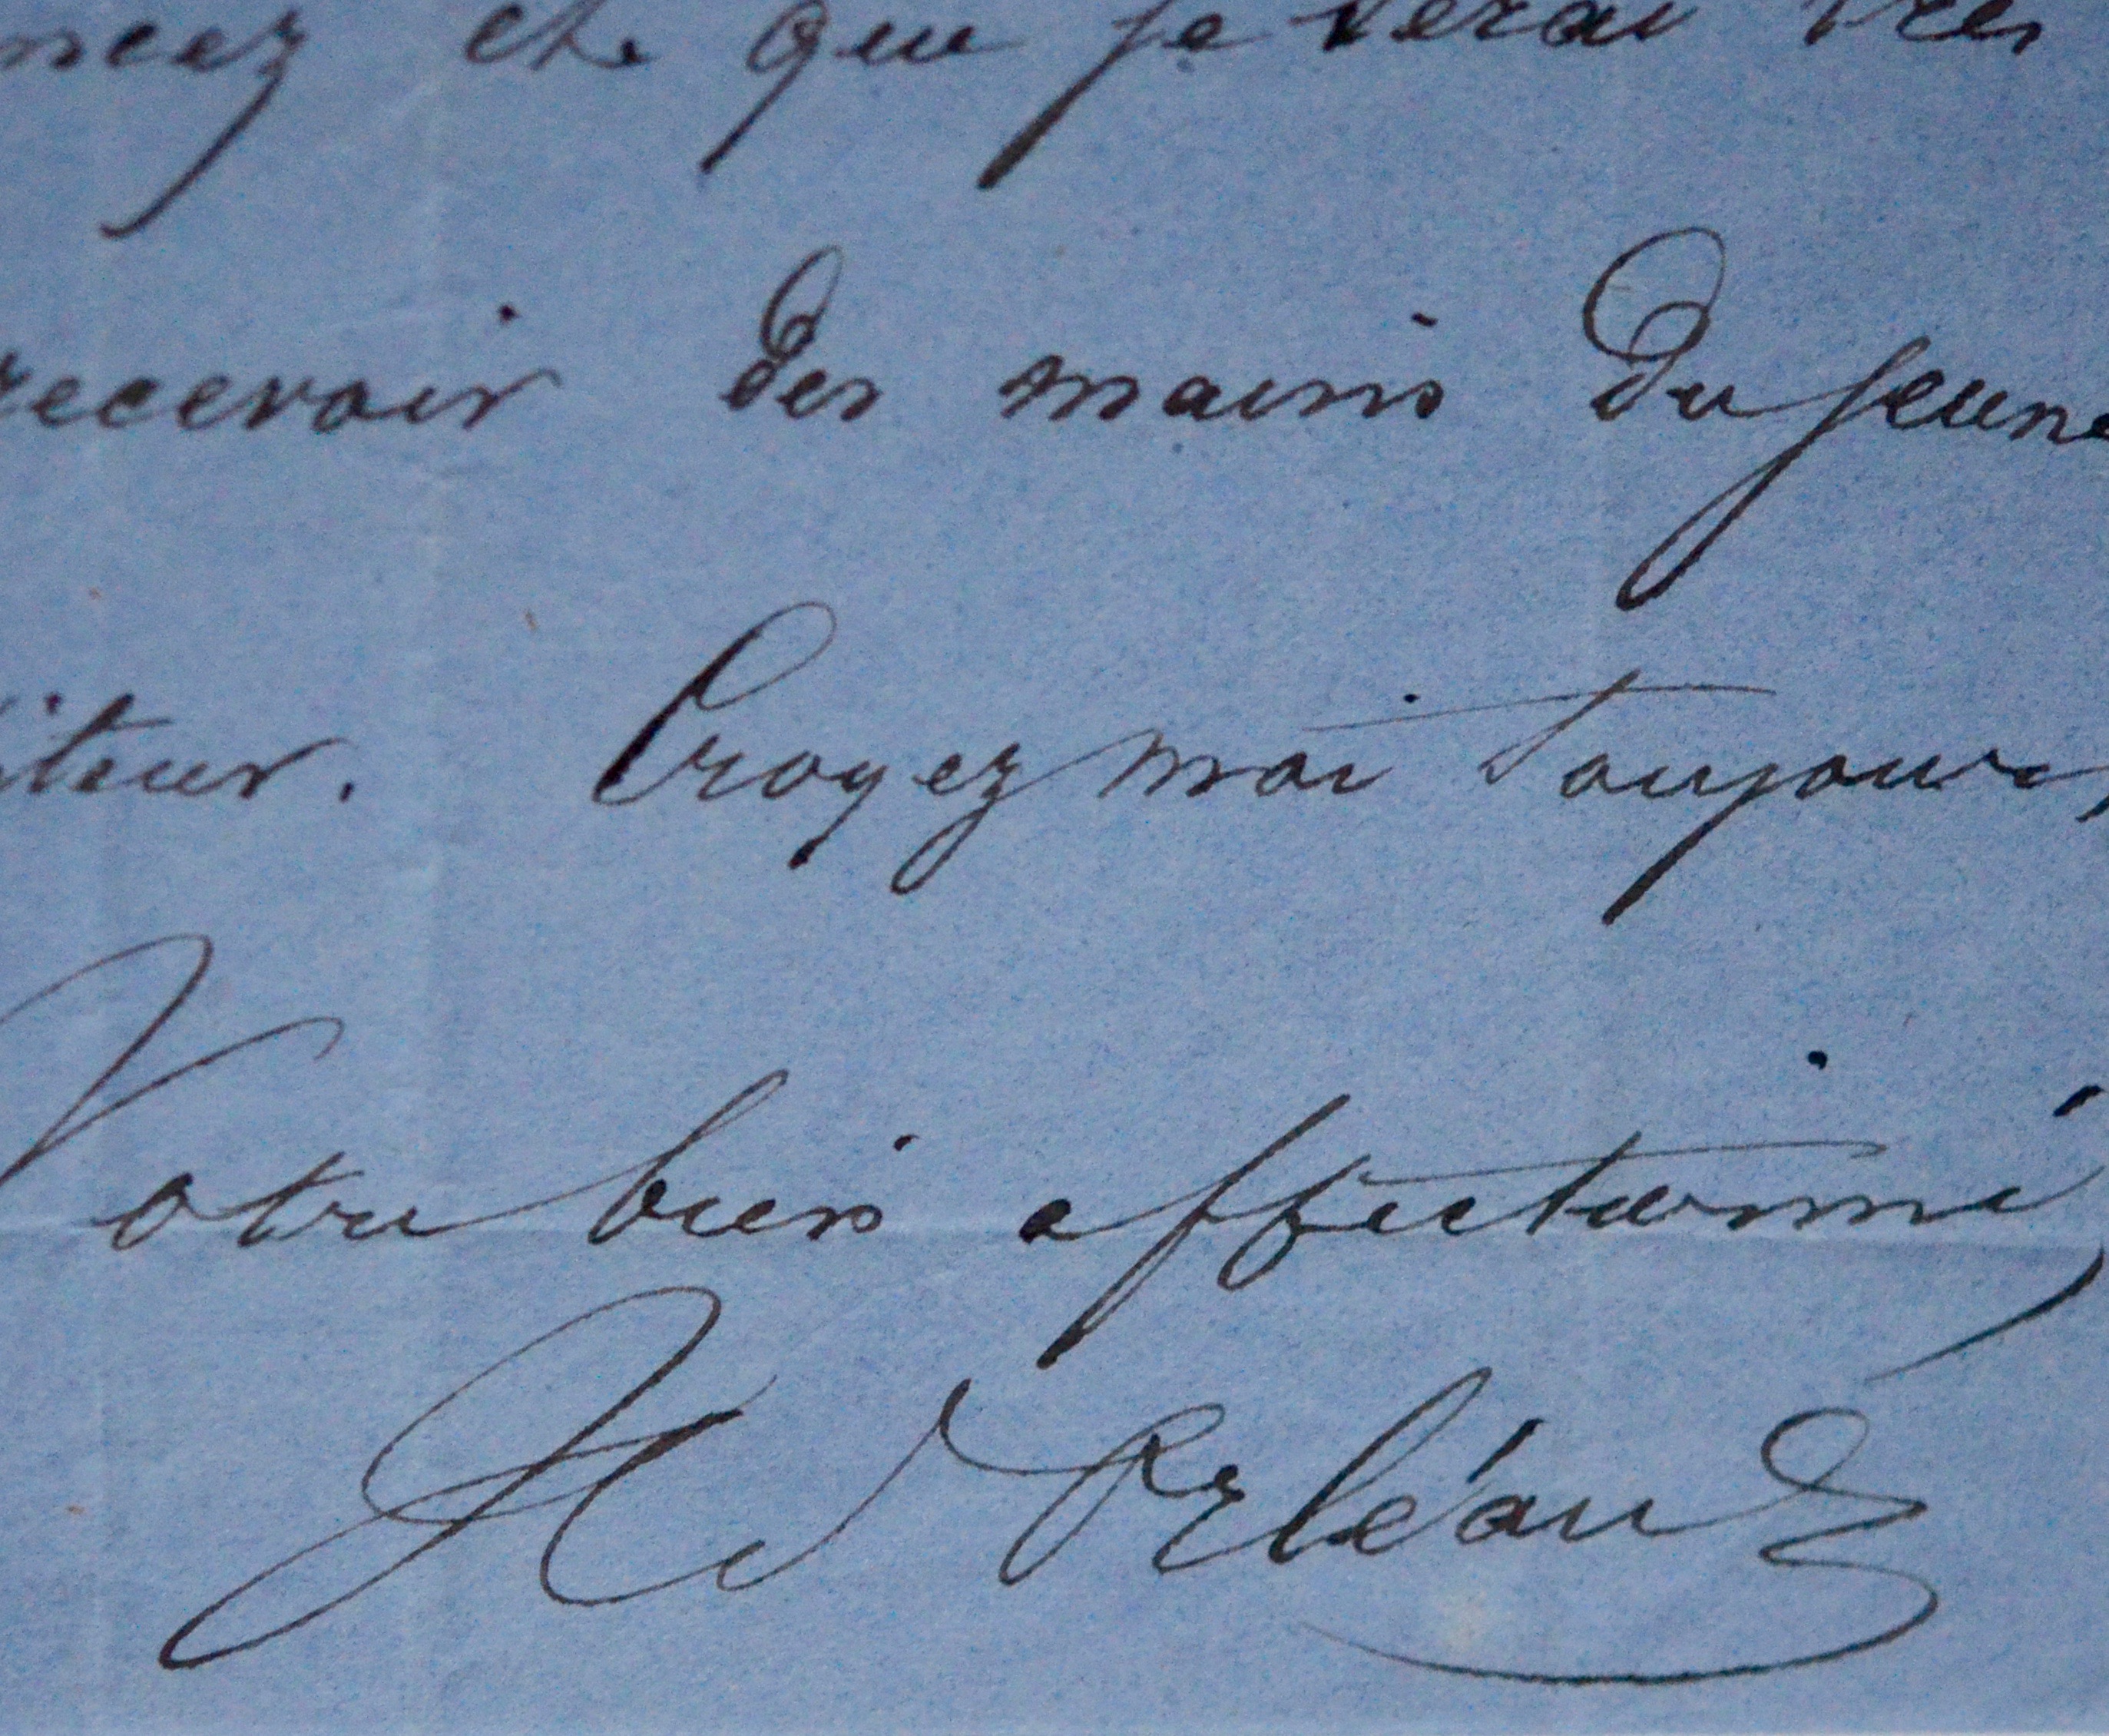 que je serai très
recevoir des mains du jeune
iteur. Croyez moi toujours
Votre bien affectionné
H d'Orléans